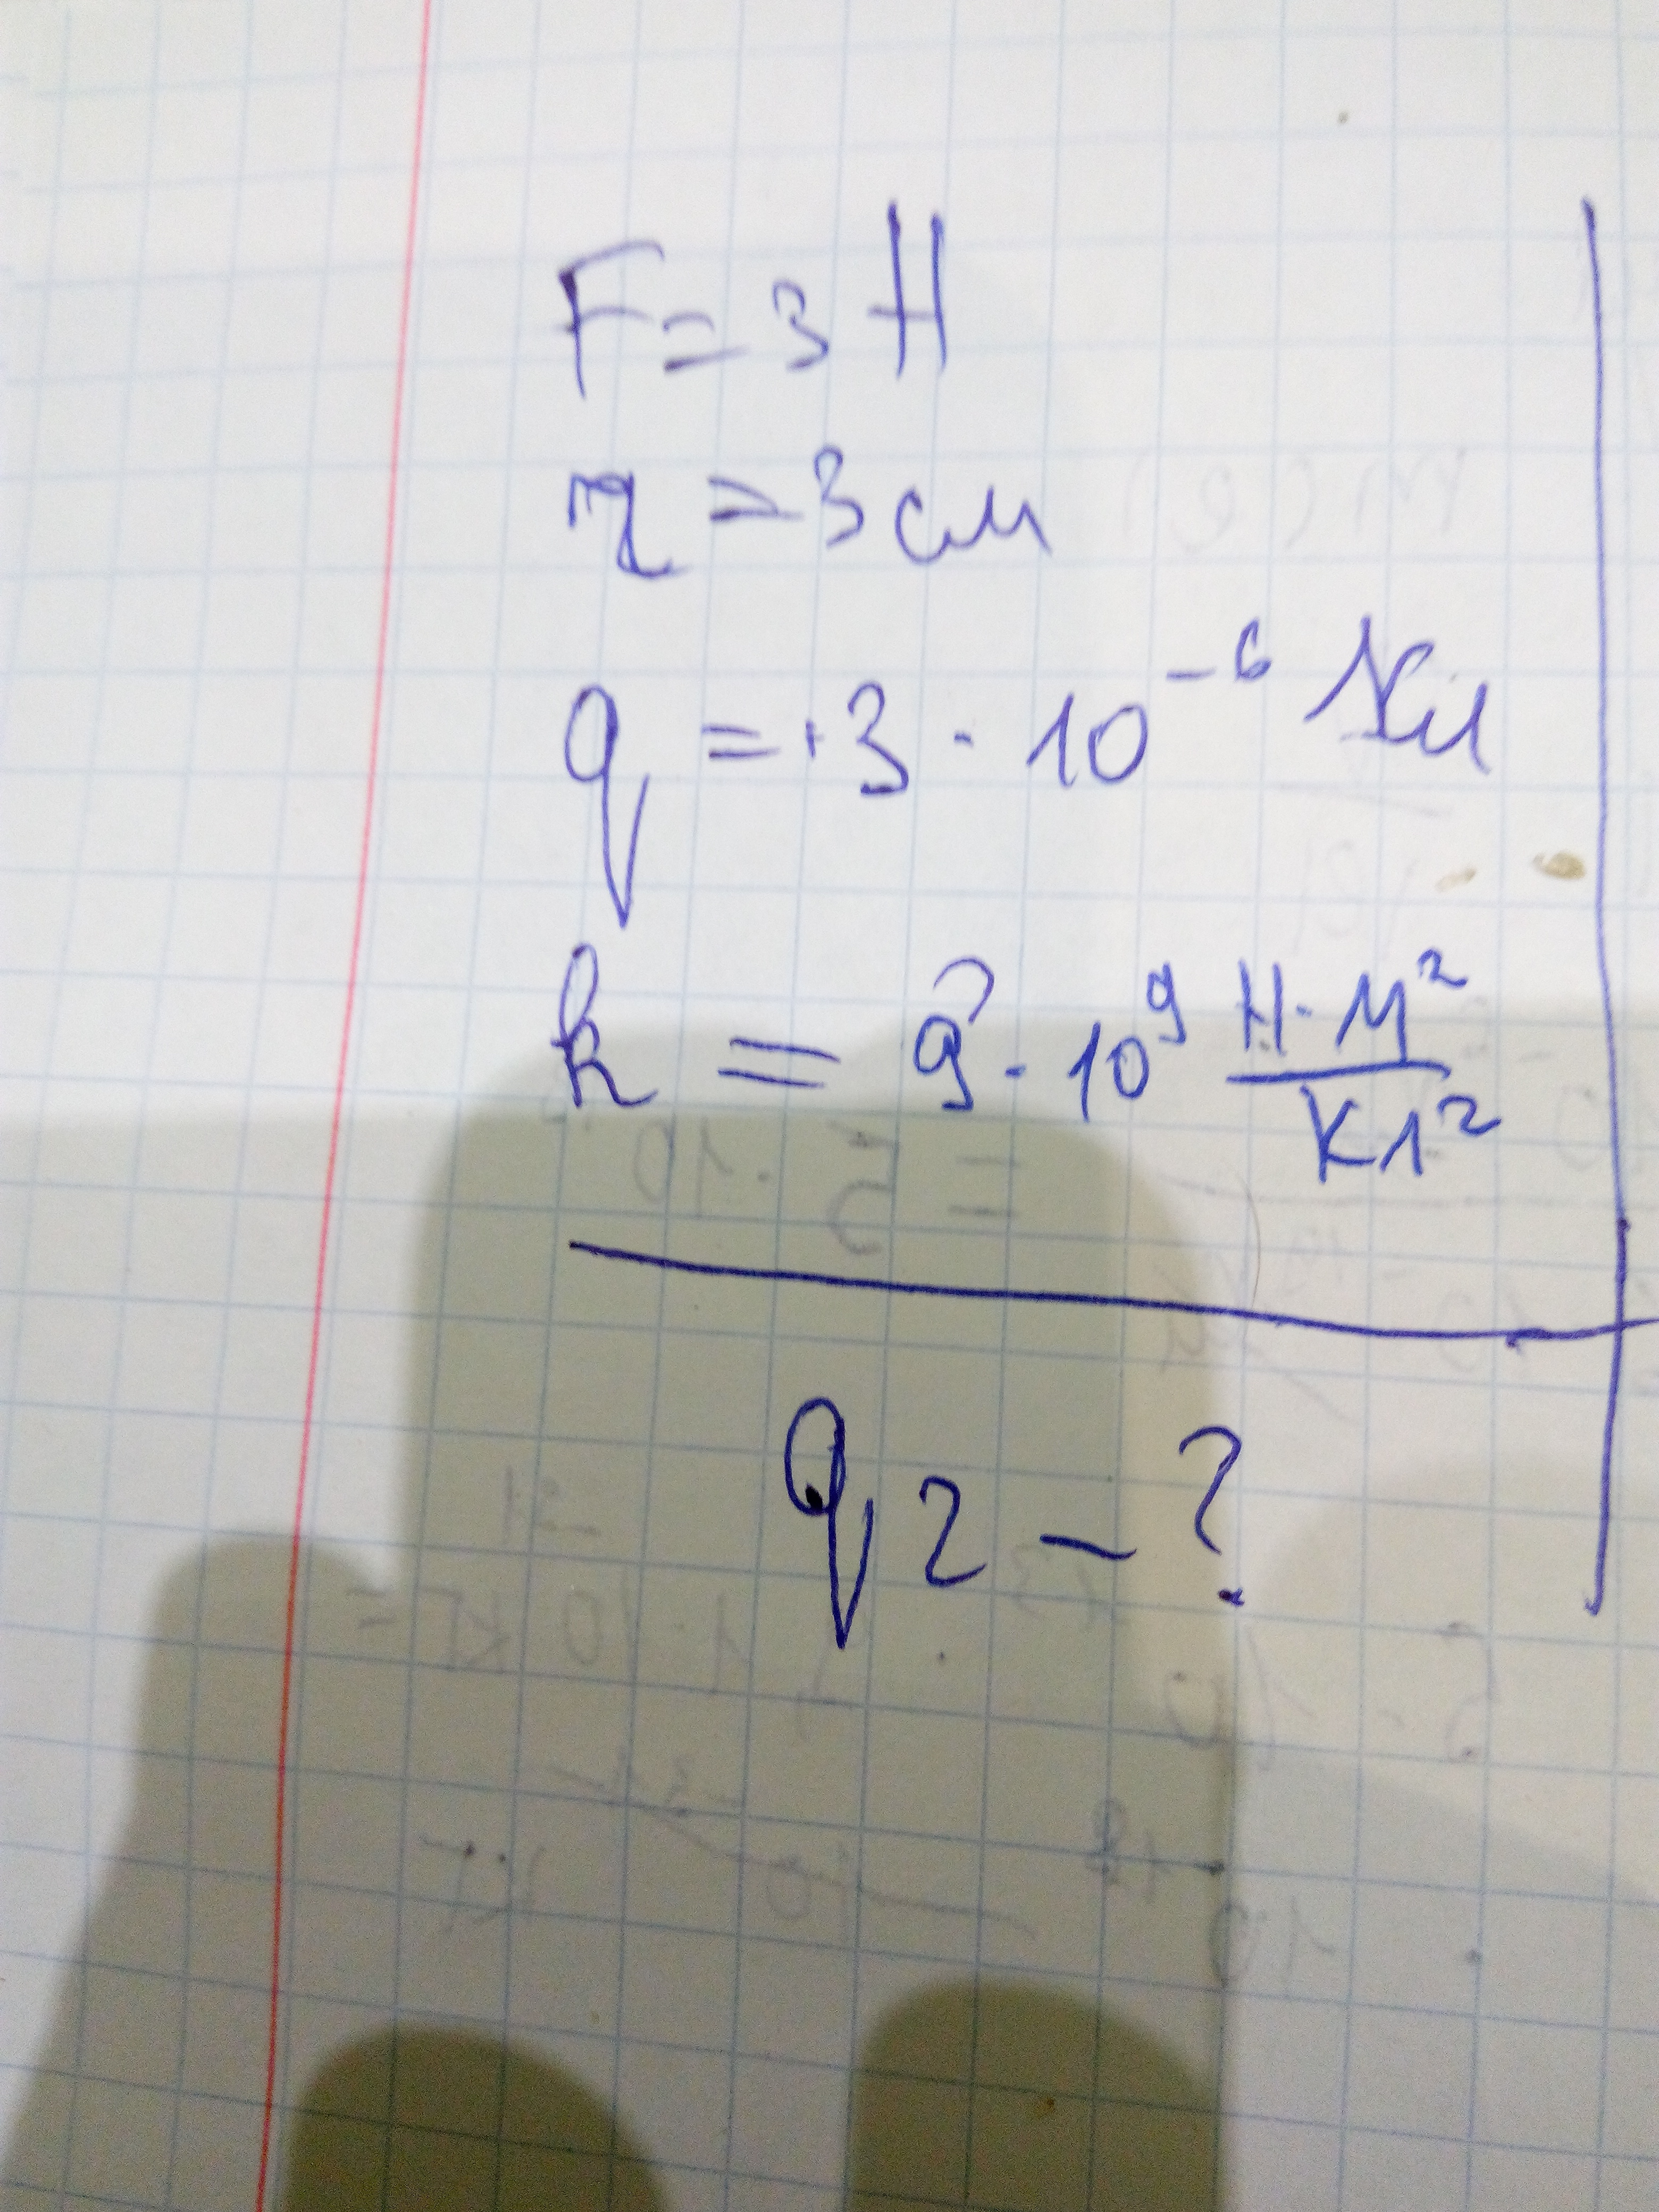 F = 3 Н
r = 3 см
q = +3 · 10⁻⁶ Кл
k = 9 · 10⁹ Н·м²/Кл²
q₂ – ?